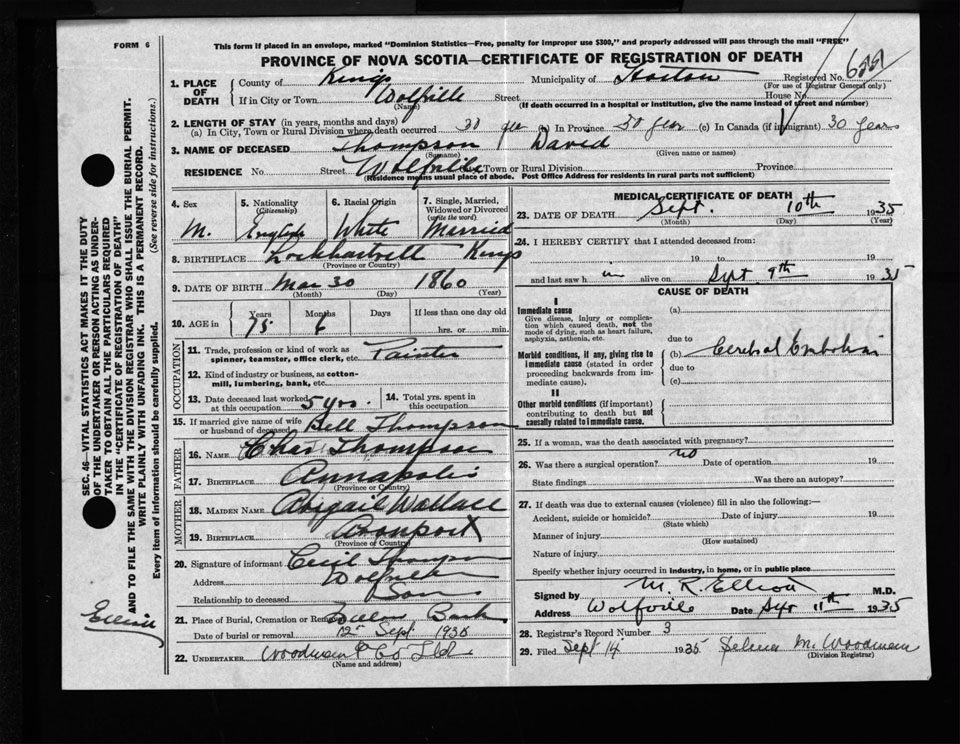 FORM 6
This form if placed in an envelope, marked "Dominion Statistics—Free, penalty for improper use $300," and properly addressed will pass through the mail "FREE"
PROVINCE OF NOVA SCOTIA—CERTIFICATE OF REGISTRATION OF DEATH
1. PLACE OF DEATH
County of Kings Municipality of Horton Registered No.
(For use of Registrar General only)
If in City or Town Wolfville Street House No.
(Name) (If death occurred in a hospital or institution, give the name instead of street and number)
2. LENGTH OF STAY (in years, months and days)
(a) In City, Town or Rural Division where death occurred 30 (b) In Province 30 year (c) In Canada (if immigrant) 30 years
3. NAME OF DECEASED Thompson David
(Surname) (Given name or names)
RESIDENCE No. Street Wolfville City, Town or Rural Division Province
(Residence means usual place of abode. Post Office Address for residents in rural parts not sufficient)
4. Sex 5. Nationality (Citizenship) 6. Racial Origin 7. Single, Married, Widowed or Divorced (write the word)
M. English White Married
8. BIRTHPLACE Kings
(Province or Country)
9. DATE OF BIRTH Mar 30 1860
(Month) (Day) (Year)
10. AGE in Years Months Days If less than one day old
75 6 hrs. or min.
OCCUPATION
11. Trade, profession or kind of work as spinner, teamster, office clerk, etc. Painter
12. Kind of industry or business, as cotton-mill, lumbering, bank, etc.
13. Date deceased last worked at this occupation 5 yrs. 14. Total yrs. spent in this occupation
15. If married give name of wife or husband of deceased Bell Thompson
FATHER
16. NAME Chas Thompson
17. BIRTHPLACE Annapolis
(Province or Country)
MOTHER
18. MAIDEN NAME Abigail Wallace
19. BIRTHPLACE
(Province or Country)
20. Signature of informant Cecil Thompson
Address Wolfville
Relationship to deceased Son
21. Place of Burial, Cremation or Removal Bank
Date of burial or removal 12th Sept 1935
22. UNDERTAKER Woodman & Co Ltd
(Name and address)
MEDICAL CERTIFICATE OF DEATH
23. DATE OF DEATH Sept. 10th 1935
(Month) (Day) (Year)
24. I HEREBY CERTIFY that I attended deceased from:
19 to 19
and last saw h im alive on Sept. 9th 1935
CAUSE OF DEATH
I
Immediate cause
Give disease, injury or complication which caused death, not the mode of dying, such as heart failure, asphyxia, asthenia, etc.
(a)
due to
Morbid conditions, if any, giving rise to immediate cause (stated in order proceeding backwards from immediate cause).
(b) Cerebral Embolism
due to
(c)
II
Other morbid conditions (if important) contributing to death but not causally related to immediate cause.
25. If a woman, was the death associated with pregnancy?
26. Was there a surgical operation? no Date of operation 19
State findings Was there an autopsy?
27. If death was due to external causes (violence) fill in also the following:—
Accident, suicide or homicide? Date of injury 19
(State which)
Manner of injury
(How sustained)
Nature of injury
Specify whether injury occurred in industry, in home, or in public place
Signed by M. R. Elliott M.D.
Address Wolfville Date Sept 11th 1935
28. Registrar's Record Number 3
29. Filed Sept 14 1935 Selena M. Woodman
(Division Registrar)
SEC. 46—VITAL STATISTICS ACT MAKES IT THE DUTY
OF THE UNDERTAKER OR PERSON ACTING AS UNDER-
TAKER TO OBTAIN ALL THE PARTICULARS REQUIRED
IN THE "CERTIFICATE OF REGISTRATION OF DEATH"
AND TO FILE THE SAME WITH THE DIVISION REGISTRAR WHO SHALL ISSUE THE BURIAL PERMIT.
WRITE PLAINLY WITH UNFADING INK. THIS IS A PERMANENT RECORD.
Every item of information should be carefully supplied. (See reverse side for instructions.)
Elliott